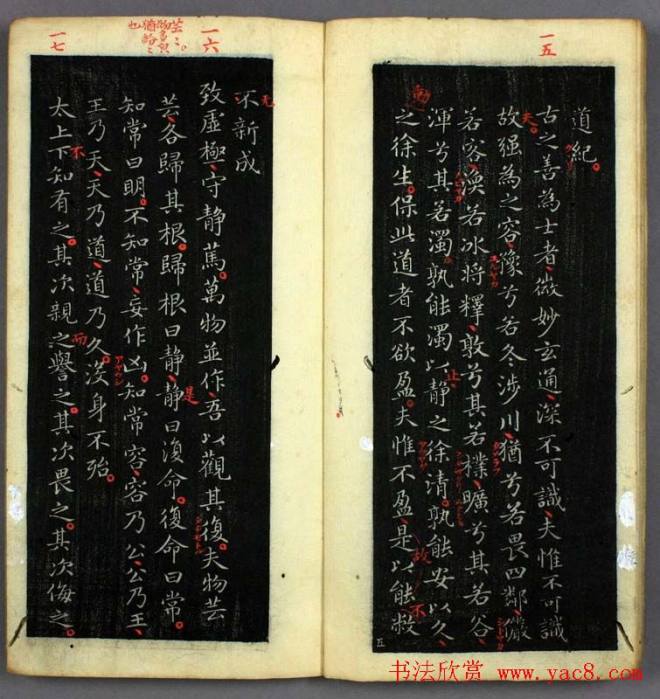 一五
道紀
古之善為士者微妙玄通深不可識夫惟不可識
故强為之容豫兮若冬涉川猶兮若畏四鄰儼
若容渙若冰將釋敦兮其若樸曠兮其若谷
渾兮其若濁孰能濁以静之徐清孰能安以久
之徐生保此道者不欲盈夫惟不盈是以能敝
五
一六
不新成
致虛極守静篤萬物並作吾以觀其復夫物芸
芸各歸其根歸根曰静静曰復命復命曰常
知常曰明不知常妄作凶知常容容乃公公乃王
王乃天天乃道道乃久沒身不殆
一七
太上下知有之其次親之譽之其次畏之其次侮之
书法欣赏 www.yac8.com